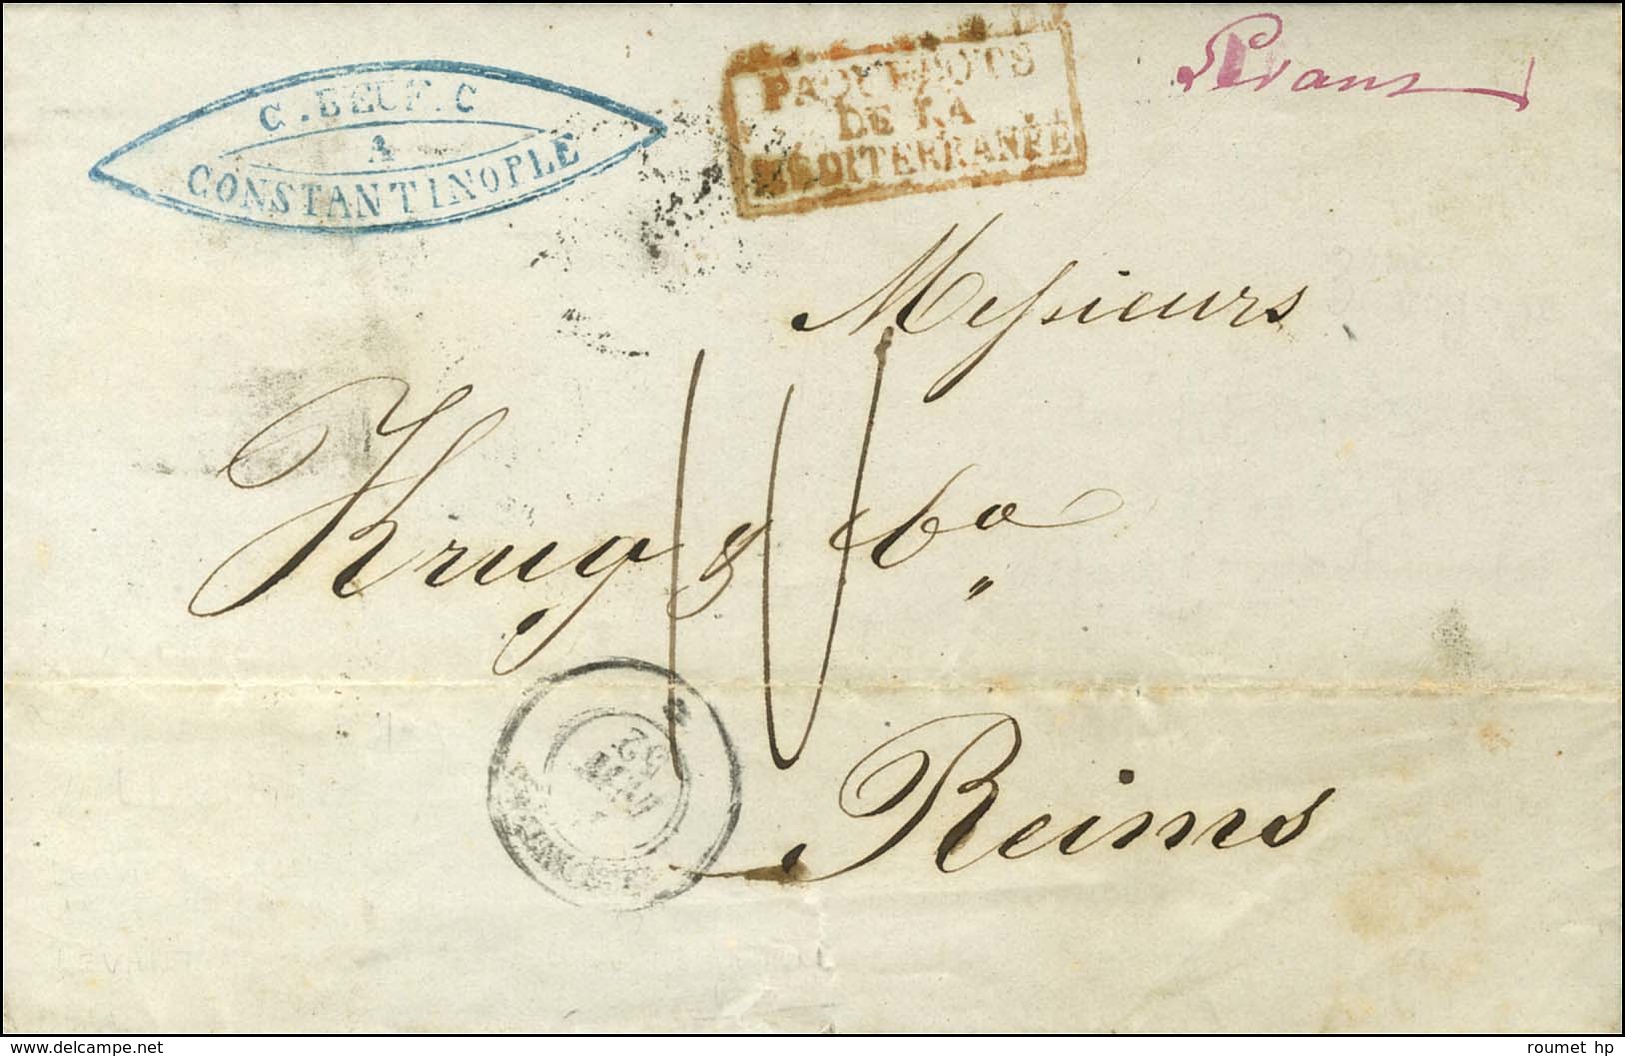 C. BEUF. C
A
CONSTANTINOPLE
PAQUEBOTS
DE LA
MÉDITERRANÉE
Messieurs
Krug & Co
10
Reims
52
www.delcampe.net
roumet hp